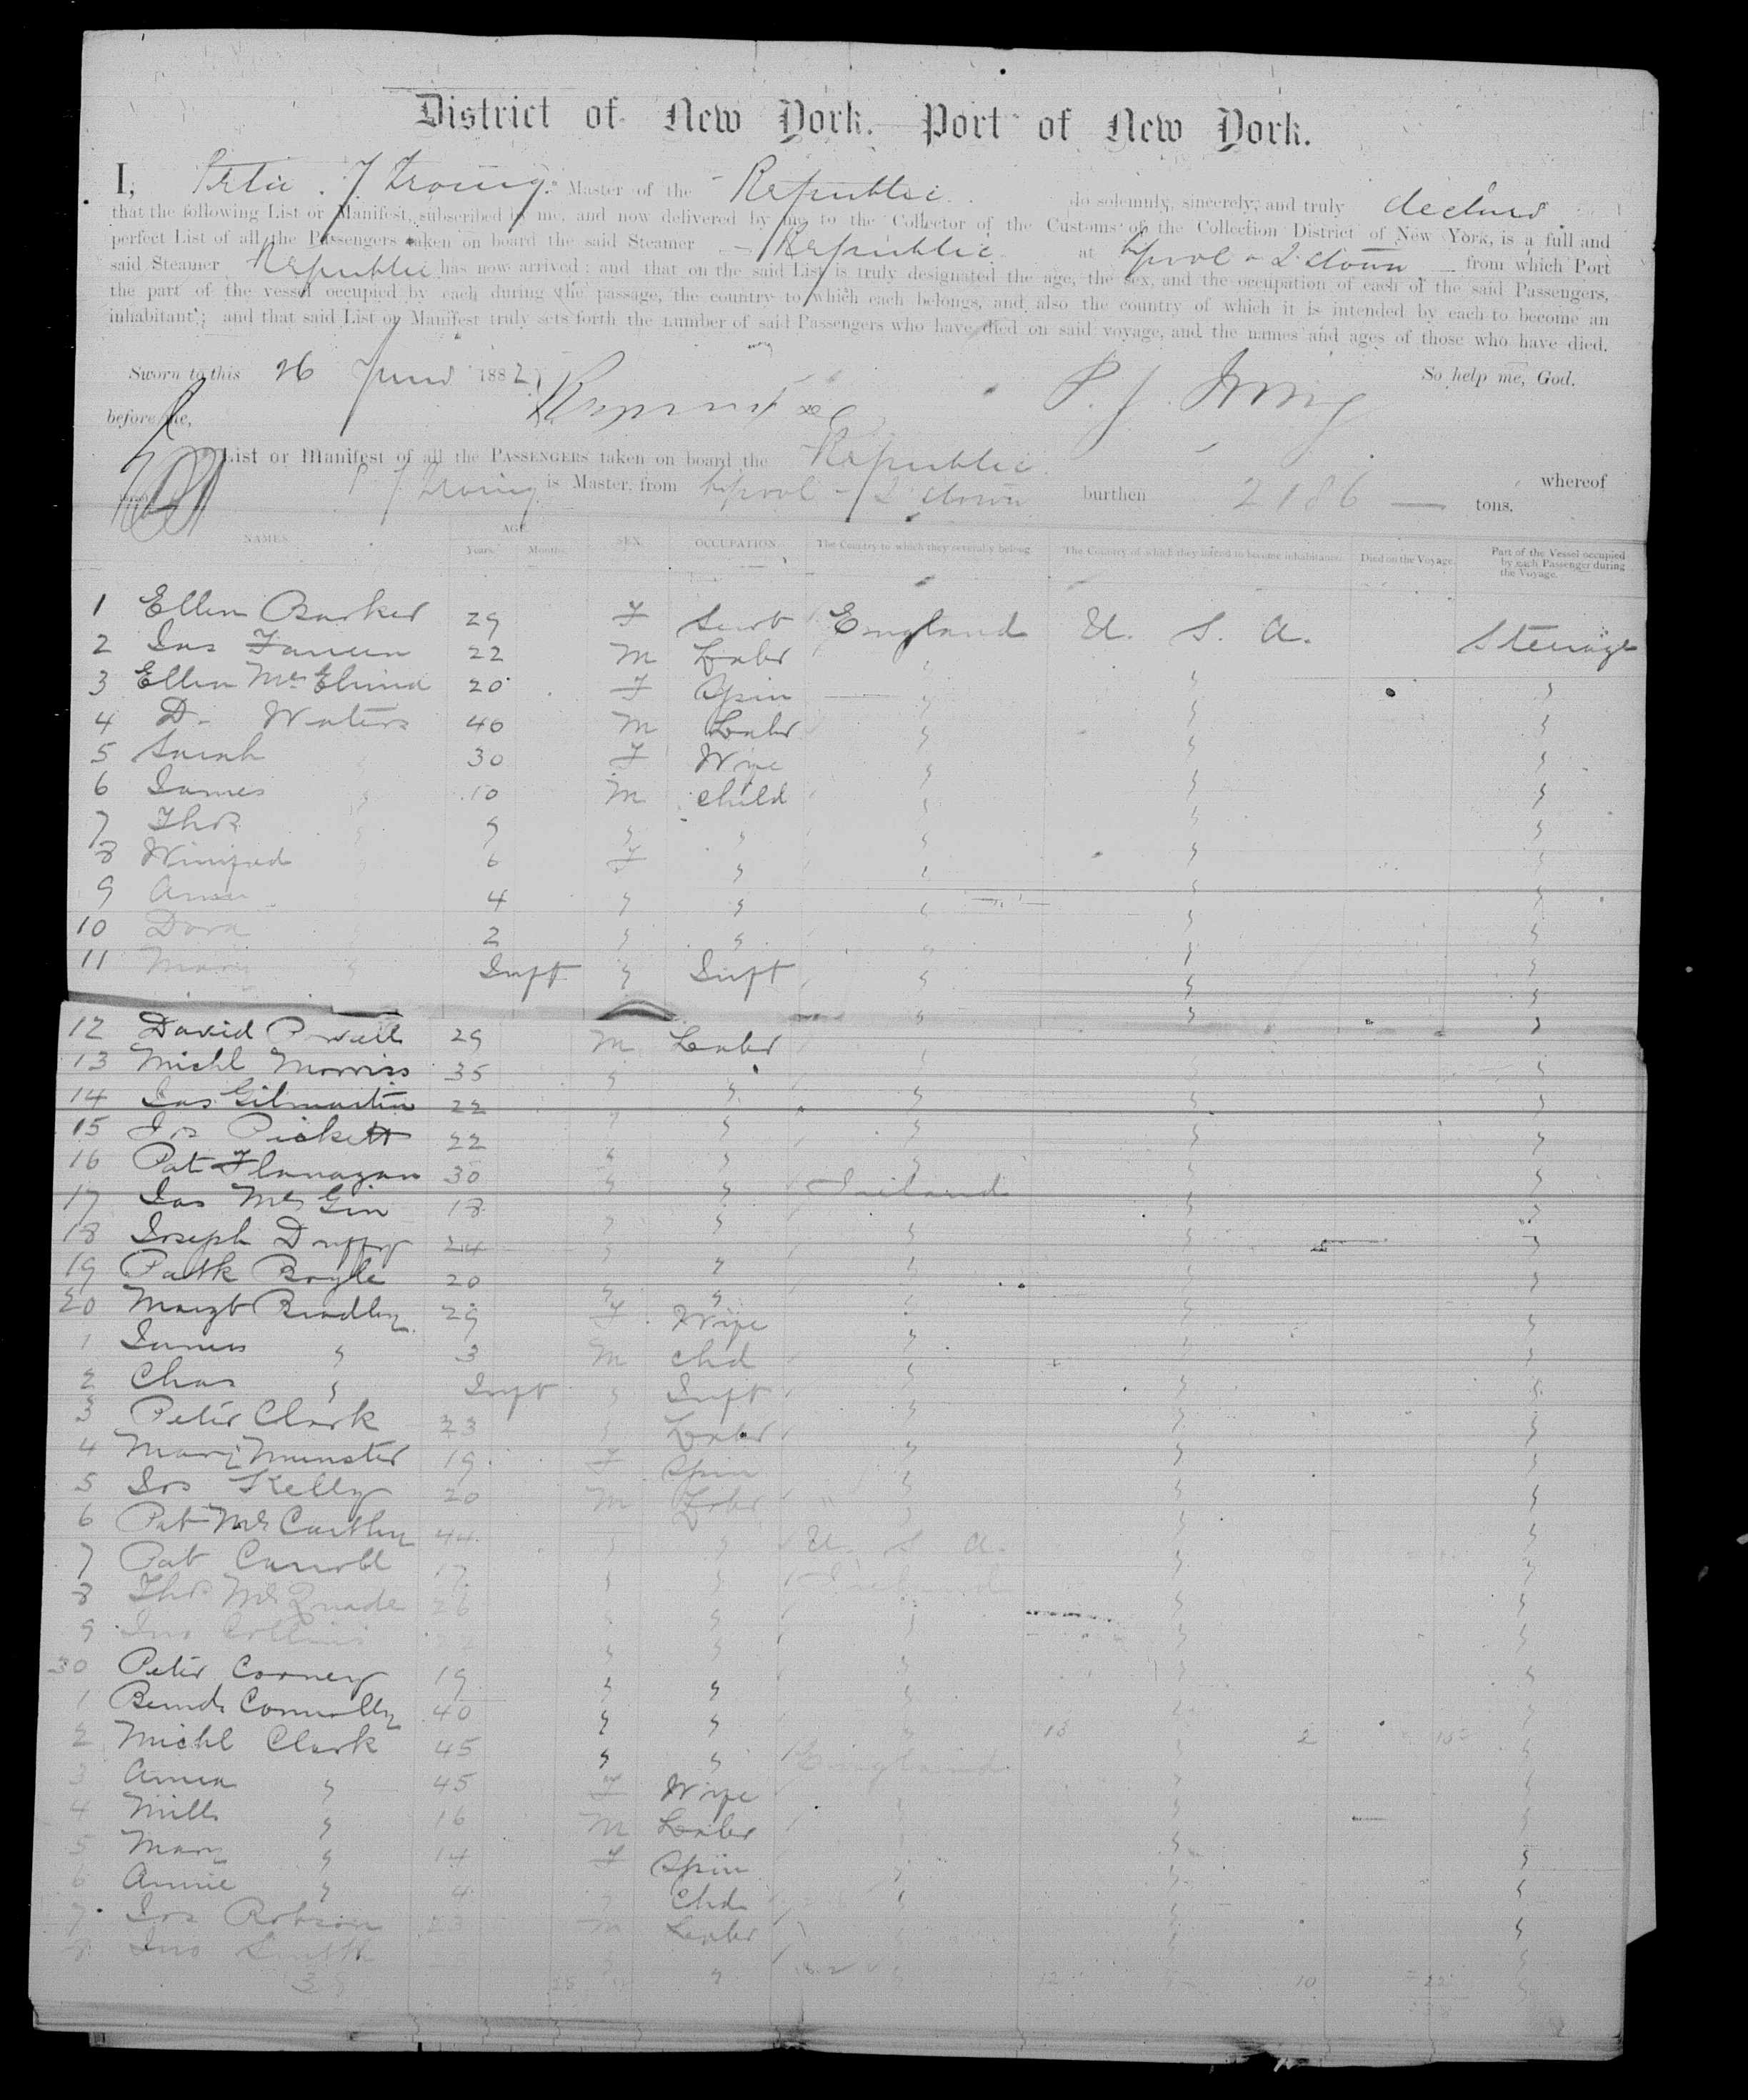 District of New York. Port of New York.
I, Peter J Irving Master of the Republic do solemnly, sincerely, and truly declare
that the following List or Manifest, subscribed by me, and now delivered by me to the Collector of the Customs of the Collection District of New York, is a full and
perfect List of all the Passengers taken on board the said Steamer Republic at Lpool & Q'stown from which Port
said Steamer Republic has now arrived; and that on the said List is truly designated the age, the sex, and the occupation of each of the said Passengers,
the part of the vessel occupied by each during the passage, the country to which each belongs, and also the country of which it is intended by each to become an
inhabitant; and that said List or Manifest truly sets forth the number of said Passengers who have died on said voyage, and the names and ages of those who have died.
Sworn to this 26 June 1882 So help me, God.
before me, P. J. Irving
List or Manifest of all the PASSENGERS taken on board the Republic whereof
P J Irving is Master, from Lpool & Q'stown burthen 2186 — tons.
NAMES. AGE. Years. Months. SEX. OCCUPATION. The Country to which they severally belong. The Country of which they intend to become inhabitants. Died on the Voyage. Part of the Vessel occupied by each Passenger during the Voyage.
1 Ellen Barker 29 F Servt England U. S. A. Steerage
2 Jas 22 M Labr " " "
3 Ellen 20 F Spin " " "
4 D. Waters 40 M Labr " " "
5 Sarah " 30 F Wife " " "
6 James " 10 M Child " " "
7 Thos " 9 " " " " "
8 Winifred " 6 F " " " "
9 " 4 " " " " "
10 Dora " 2 " " " " "
11 Mary " Inft " Inft " " "
12 David Powell 29 M Labr " " "
13 Michl Morriss 35 " " " " "
14 Jas Gilmartin 22 " " " " "
15 Jos Pickett 22 " " " " "
16 Pat Flanagan 30 " " Ireland " "
17 Jas McGin 18 " " " " "
18 Joseph Duffy 24 " " " " "
19 Patk Boyle 20 " " " " "
20 Margt Bradley 29 F Wife " " "
1 James " 3 M Chd " " "
2 Chas " Inft " Inft " " "
3 Peter Clark 23 " Labr " " "
4 Mary Munster 19 F Spin " " "
5 Jos Kelly 20 M Labr " " "
6 Pat McCarthy 44 " " U. S. A. " "
7 Pat Carroll 17 " " Ireland " "
8 Thos McQuade 26 " " " " "
9 Jno Collins " " " " "
30 Peter Corney 19 " " " " "
1 Bernd Connolly 40 " " " " "
2 Michl Clark 45 " " England " "
3 " 45 F Wife " " "
4 " 16 M Labr " " "
5 Mary " 14 F Spin " " "
6 Annie " 4 " Chd " " "
7 Jos Robson 23 M Labr " " "
8 Jno Smith " " " " "
38